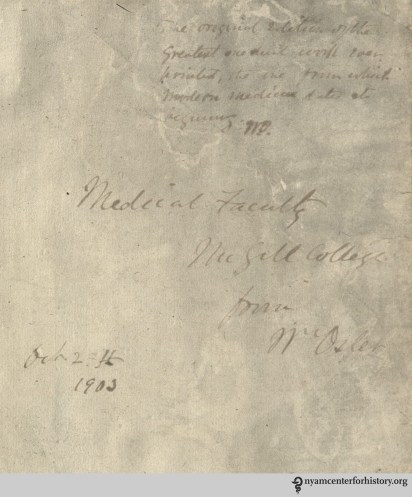 The original edition of the
Greatest medical work ever
printed, the one from which
modern medicine dates its
beginning. WO.
Medical Faculty
McGill College
from
Wm Osler
Oct 2
1903
nyamcenterforhistory.org